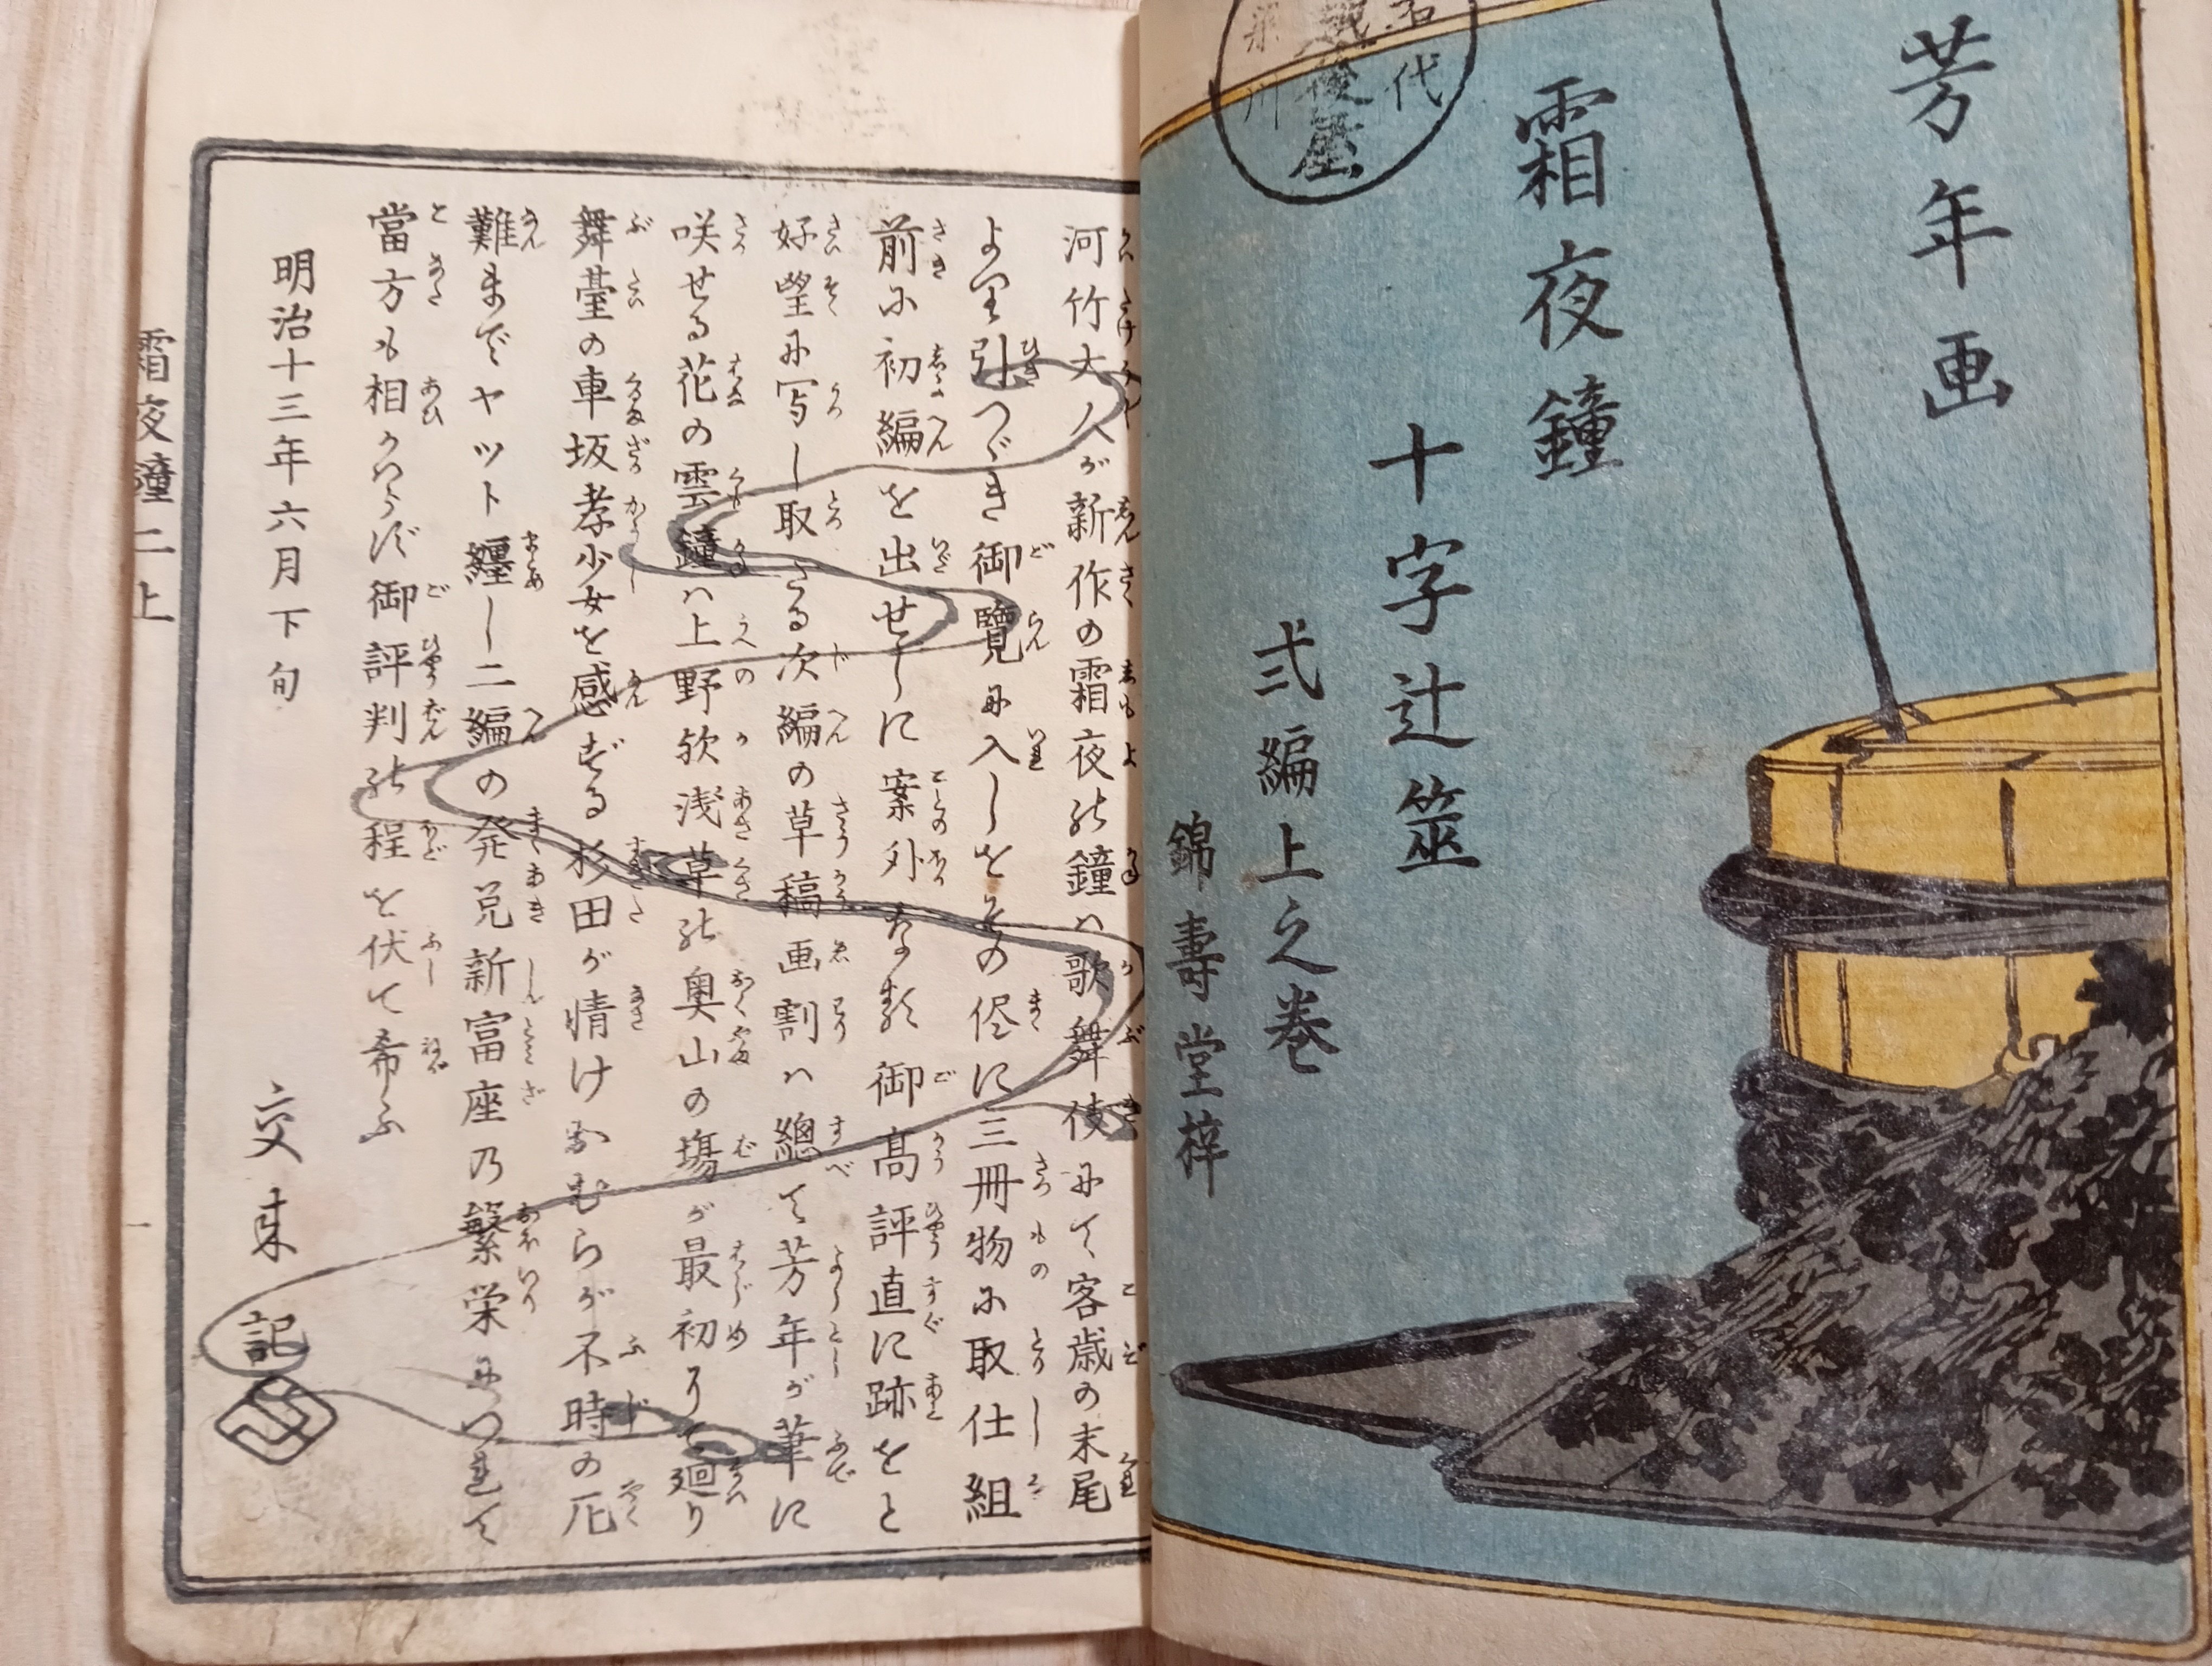 芳年画
霜夜鐘
十字辻筮
弍編上之巻
錦壽堂梓
河竹大人が新作の霜夜の鐘ハ歌舞伎にて客歳の末尾
より引つゞき御覧に入しを其の侭に三冊物に取仕組
前に初編を出せしに案外なる御高評直に跡をと
好望に写し取たる次編の草稿画割ハ總て芳年が筆に
咲せる花の雲鐘ハ上野歟浅草の奥山の場が最初りで廻り
舞臺の車坂孝少女を感ずる杉田が情けおむらが不時の厄
難までヤツト纏し二編の発兌新富座乃繁栄につれて
當方も相かはらず御評判の程を伏て希ふ
明治十三年六月下旬
交来記
霜夜鐘二上
一